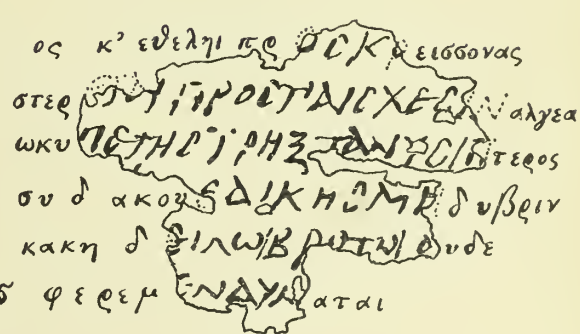 ος κ' εθεληι πρΟΣΚρεισσονας
στερ ΠΡΟΣΤΑΙΣΧΕΣΙΝαλγεα
ωκυΠΕΤΗΣΙΡΗΞΤΑΝΥΣΙΠτερος
συ δ ακουΕΔΙΚΗΣΜΗδ υβριν
κακη δ ΕΙΛΩΙΒΡΟΤΩΙΟυδε
φερεμΕΝΔΥΝαται